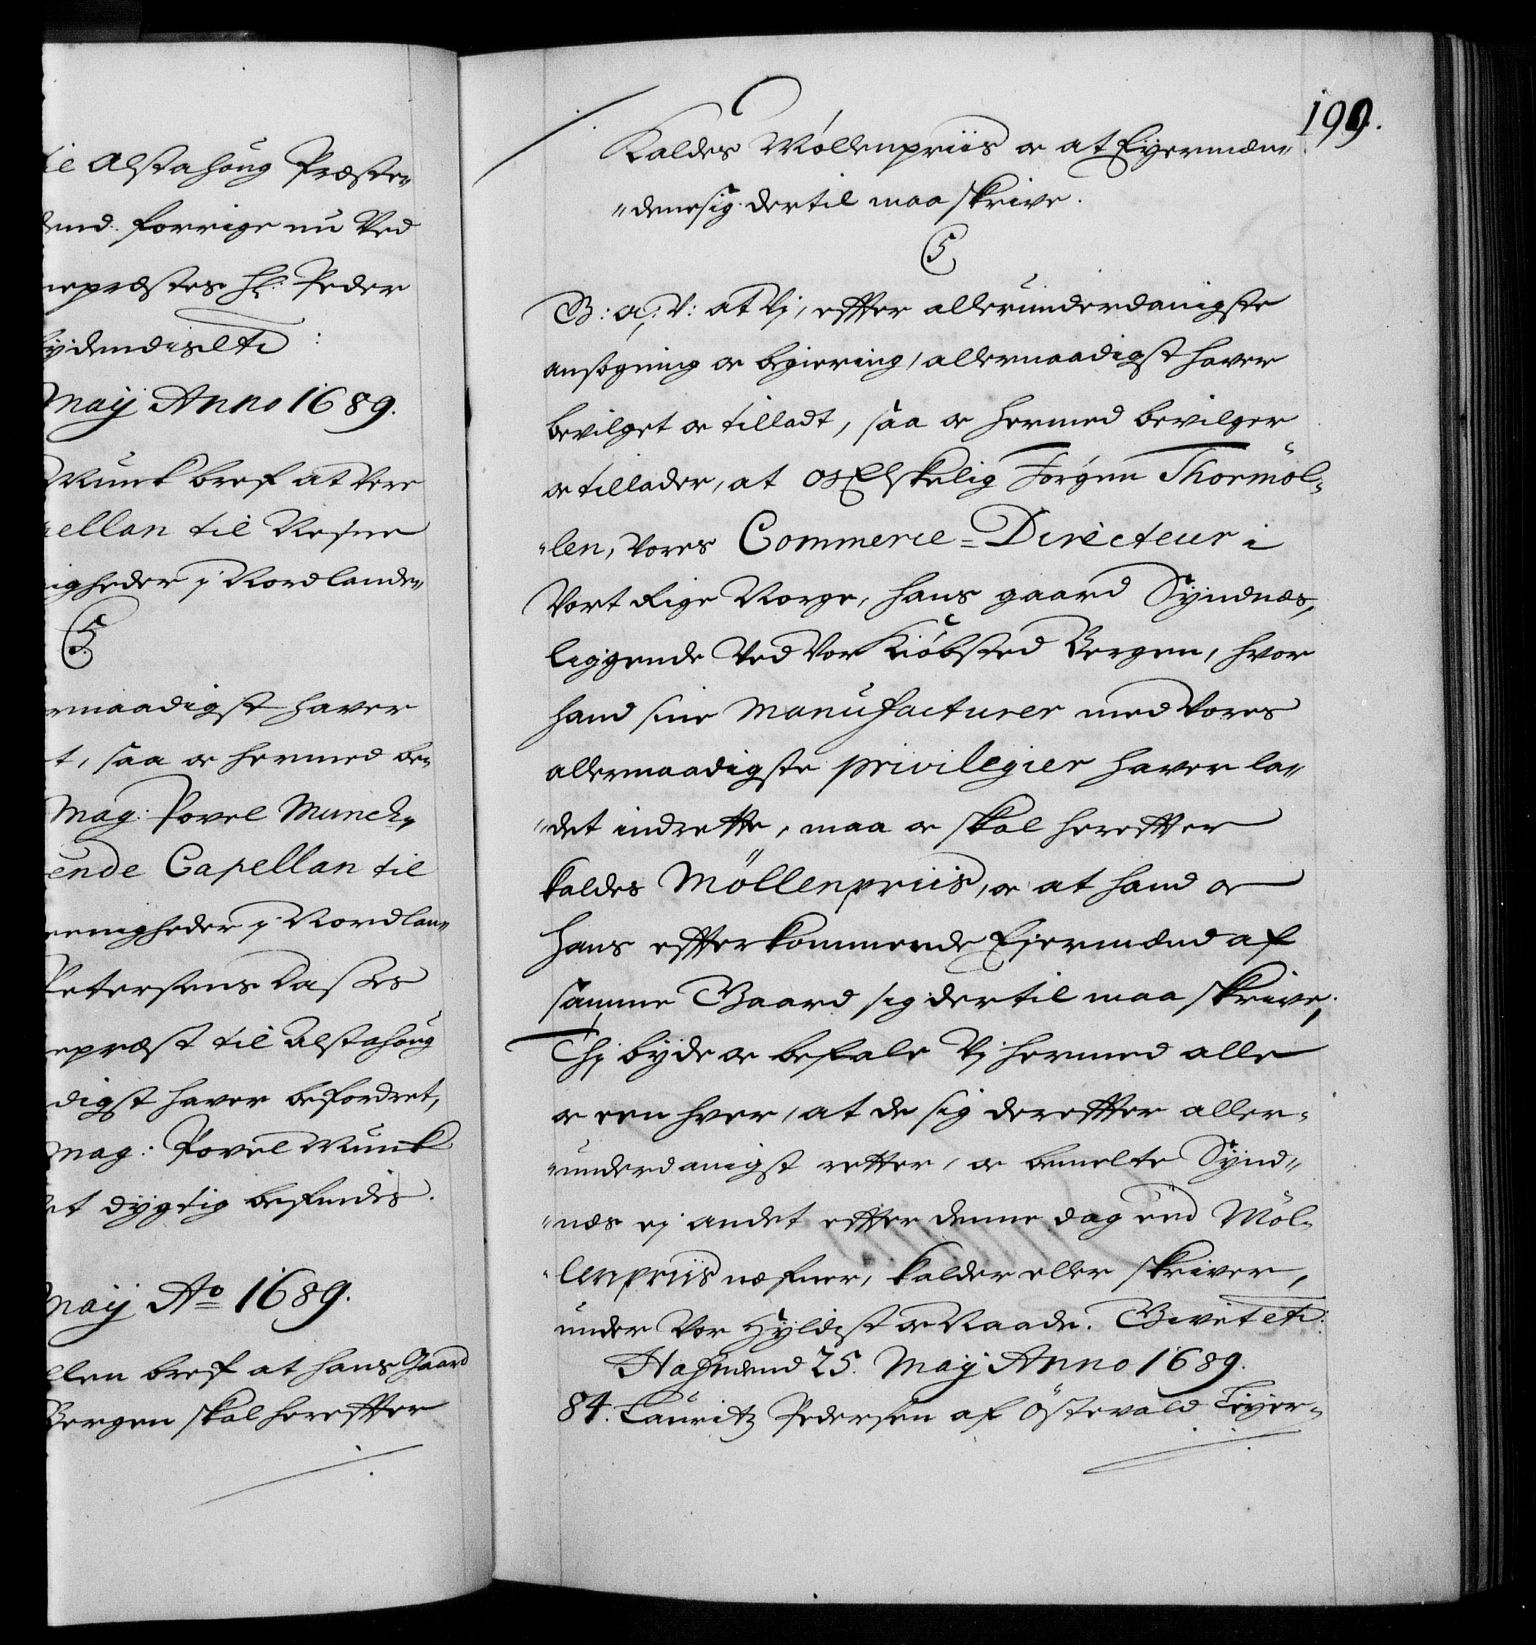 til Alstahoug Præste„
dend forrige nu Ved
nepræstes Hr: Peder
ydendis etc:
Maij Anno 1689.
Munk bref at Være
pellan til Nesne
igheder i Nordlande„
C5
ernaadigst hafver
t, saa oc hermed be„
Mag: Povel Munch„
ende Capellan til
menigheder i Nordlan„
Petersens Dasses
nepræst til Alstahoug
digst hafver befordret,
Mag: Povel Munk
et dygtig befindes.
Maij Ao 1689.
llen bref at hans Gaard
Bergen skal herefter
199.
Kaldes Møllenpriis oc at Eyermæn„
„dene sig dertil maa skrive.
C5
G: a: V: at Vi, effter allerunderdanigste
ansøgning oc begiering, allernaadigst hafver
bevilget oc tilladt, saa oc hermed bevilger
oc tillader, at Os Elskelig Jørgen Thormöl„
„len, Vores Commerce=Directeur i
Vort Rige Norge, hans gaard Syndnæs,
liggende Ved Vor Kiöbsted Bergen, hvor
hand sine Manufacturer med Vores
allernaadigste privilegier hafver la„
„det indrette, maa oc skal hereffter
kaldes Möllenpriis, oc at hand oc
hans effterkommende Ejermænd af
samme Gaard sig dertil maa skrive;
Thi byde oc befale Vi hermed alle
oc een hver, at de sig dereffter aller„
„underdanigst retter, oc bemelte Synd„
„næs ej andet effter denne dag end Möl„
„lenpriis nefner, kalder eller skriver,
under Vor Hyldist oc Naade. Givet etc:
Hafniæ d 25. Maij Anno 1689.
84. Lauritz Pedersen af Östevald Tyer„